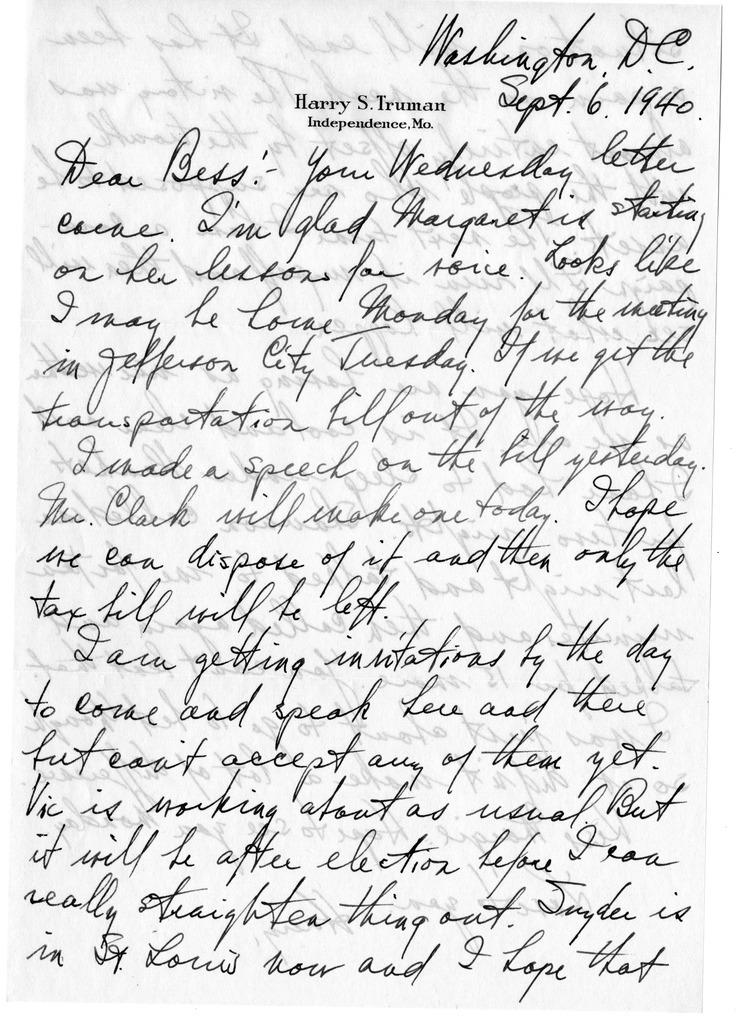 Washington, D.C.
Sept. 6, 1940.
Harry S. Truman
Independence, Mo.
Dear Bess:- Your Wednesday letter
came. I'm glad Margaret is starting
on her lessons for voice. Looks like
I may be home Monday for the meeting
in Jefferson City Tuesday. If we get the
transportation bill out of the way.
I made a speech on the bill yesterday.
Mr. Clark will make one today. I hope
we can dispose of it and then only the
tax bill will be left.
I am getting invitations by the day
to come and speak here and there
but can't accept any of them yet.
Vic is working about as usual. But
it will be after election before I can
really straighten thing out. Snyder is
in St. Louis now and I hope that